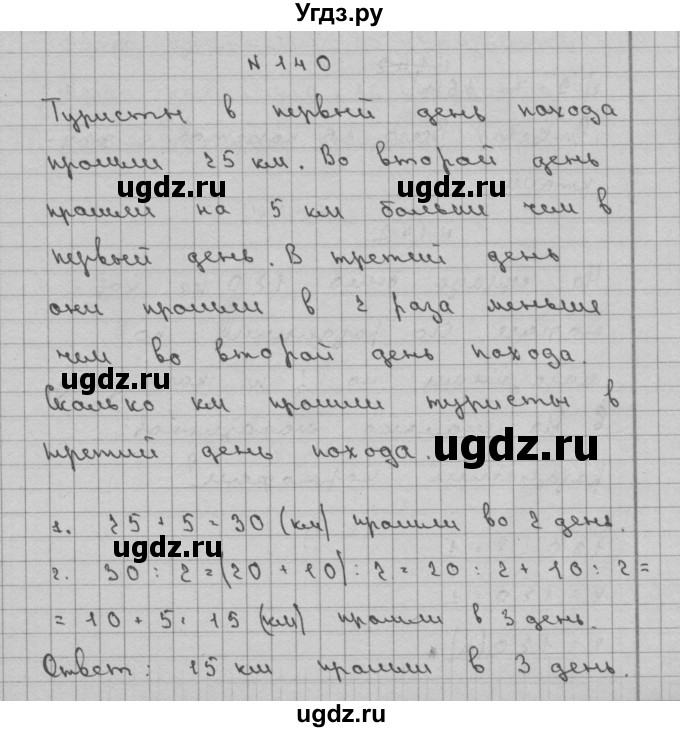 Угдз.ру
N 140
Туристы в первый день похода
прошли 25 км. Во второй день
ugdz.ru ugdz.ru
прошли на 5 км больше чем в
первый день. В третий день
они прошли в 2 раза меньше
чем во второй день похода.
ugdz.ru
Сколько км прошли туристы в
третий день похода. ugdz.ru
1. 25 + 5 = 30 (км) прошли во 2 день.
ugdz.ru
2. 30 : 2 = (20 + 10) : 2 = 20 : 2 + 10 : 2 =
= 10 + 5 = 15 (км) прошли в 3 день.
Ответ: 15 км прошли в 3 день.
ugdz.ru